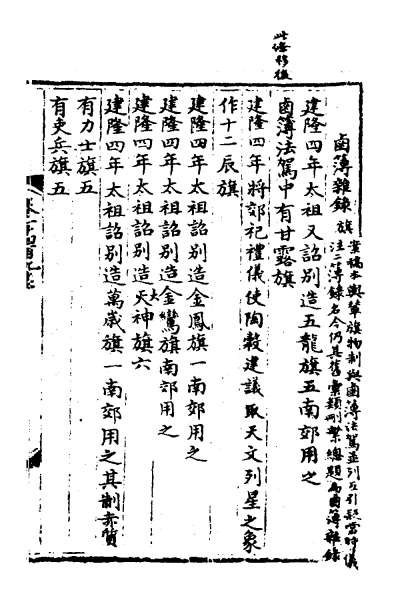 此條移後
鹵簿雜錄 旗
案稿本輿輦旗物制與鹵簿法駕並列互引疑當時儀
注二簿錄名今仍其舊彙類刪繁總題為鹵簿雜錄
建隆四年太祖又詔別造五龍旗五南郊用之
鹵簿法駕中有甘露旗
建隆四年將郊祀禮儀使陶穀建議取天文列星之象
作十二辰旗
建隆四年太祖詔別造金鳳旗一南郊用之
建隆四年太祖詔別造金鸞旗南郊用之
建隆四年太祖詔別造大天神旗六
建隆四年太祖詔別造萬歲旗一南郊用之其制赤質
有力士旗五
有吏兵旗五